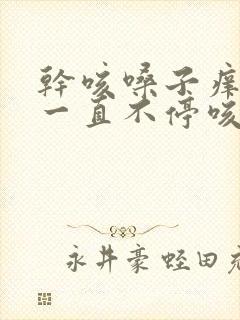 幹咳嗓子癢
一直不停咳
永井豪蛭田充